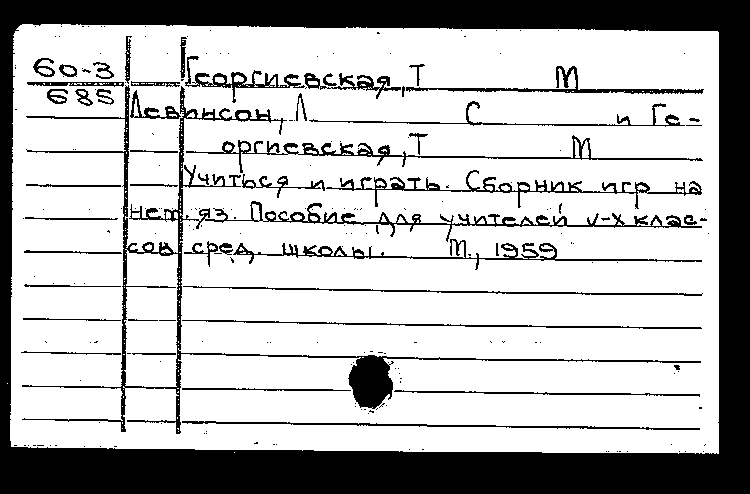 60-3 Георгиевская, Т М
685 Левинсон, Л С и Ге-
оргиевская, Т М
Учиться и играть. Сборник игр на
нем. яз. Пособие для учителей V-X клас-
сов сред. школы. М., 1959